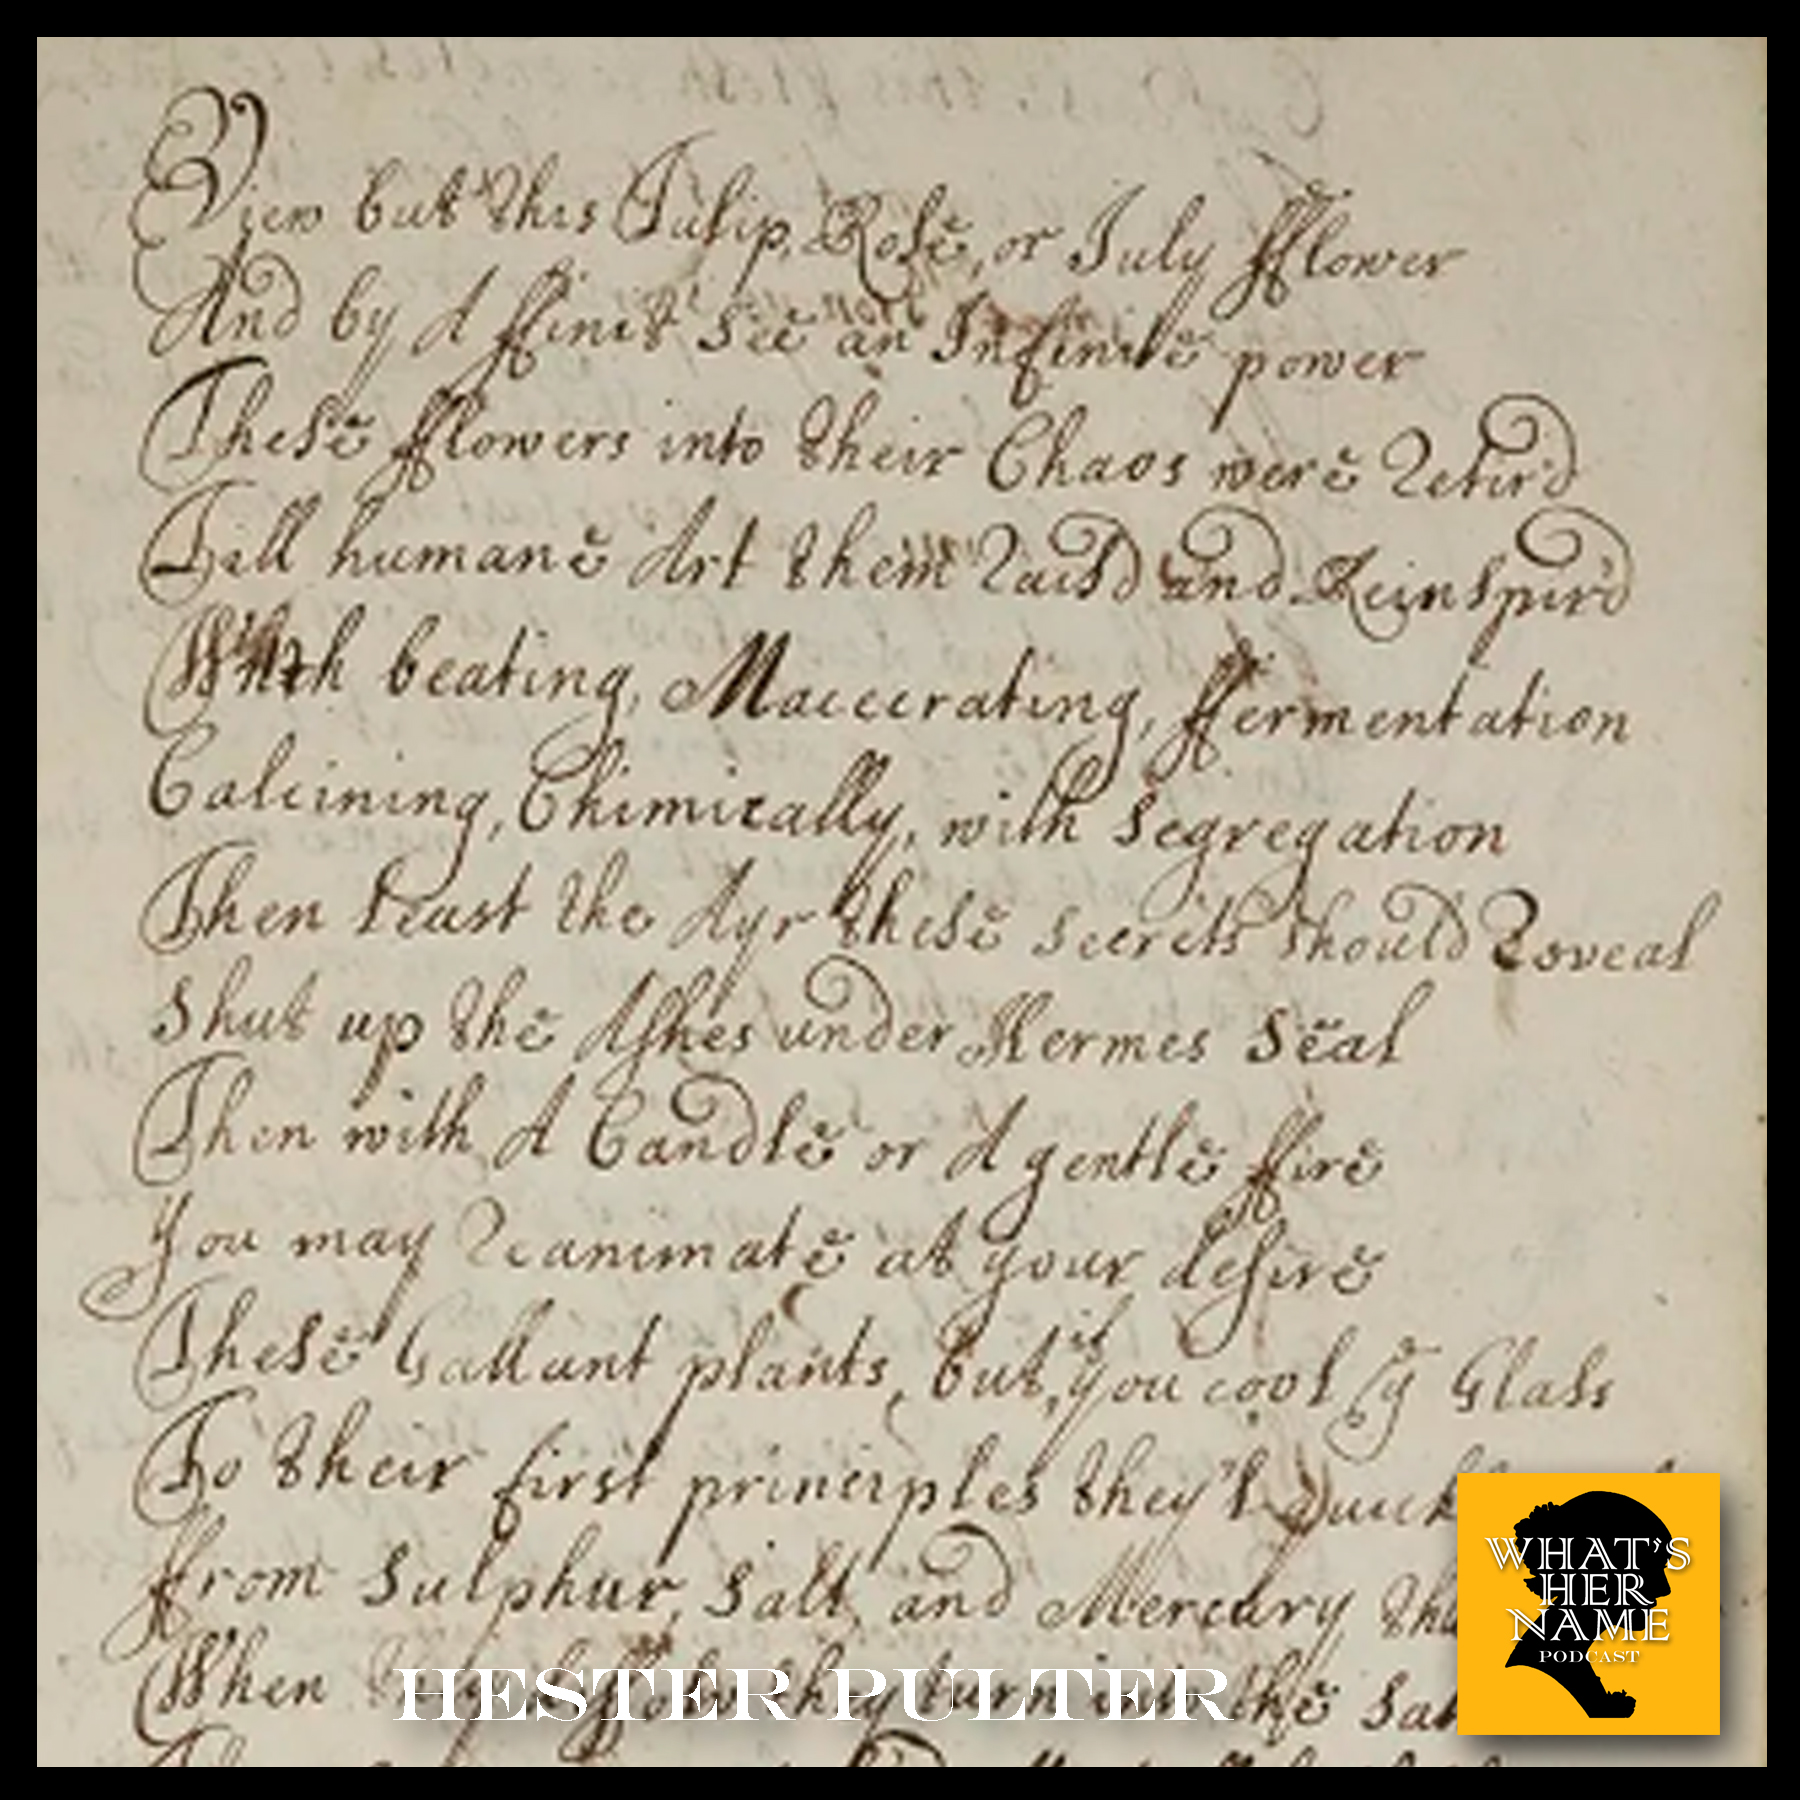 View but this Tulip, Rose, or July fflower
And by A ffinit See an Infinite power
These fflowers into their Chaos were Retir'd
Till humane Art them Raisd and Reinspir'd
With beating, Maccerating, ffermentation
Calcining, Chimically, with Segregation
Then least the Ayr these Secrets should Reveal
Shut up the Ashes under Hermes Seal
Then with A Candle or A gentle ffire
You may Reanimate at your desire
These Gallant plants, but if you cool ye Glass
To their first principles they'l
ffrom Sulphur, Salt, and Mercury
When they turn into the
HESTER PULTER
WHAT'S
HER
NAME
PODCAST